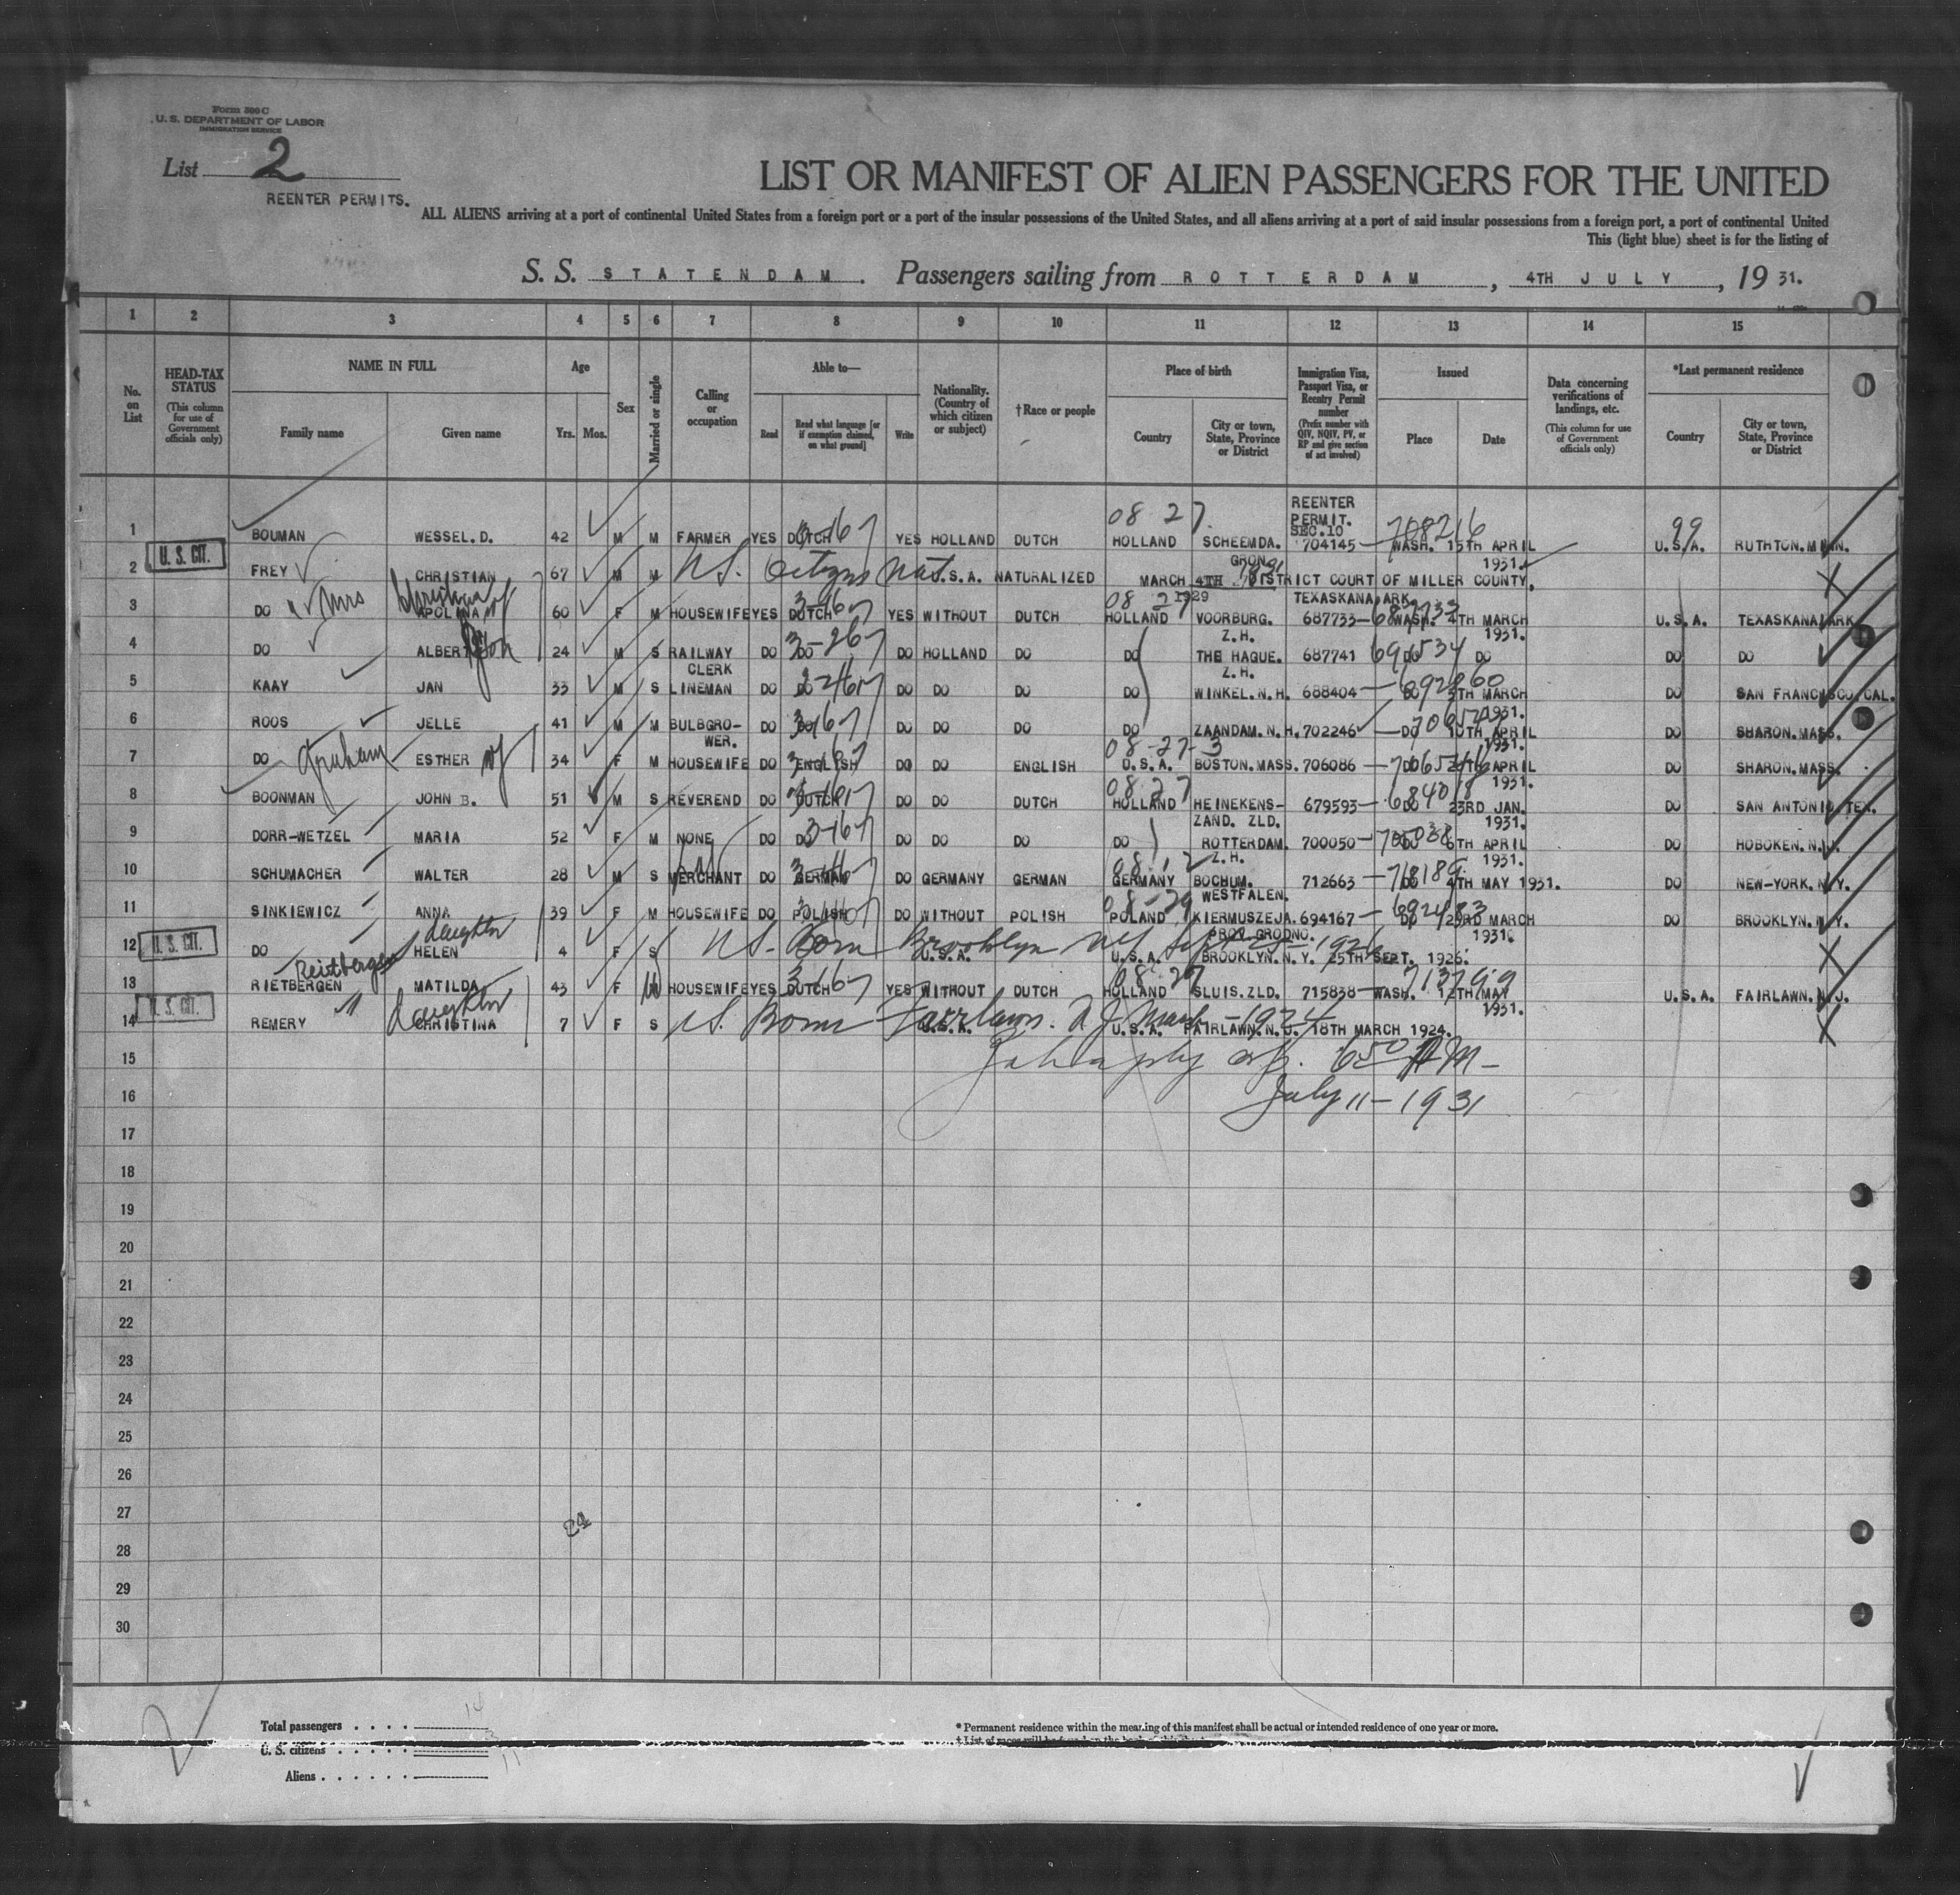 Form 500 C
U. S. DEPARTMENT OF LABOR
IMMIGRATION SERVICE
List 2
REENTER PERMITS.
LIST OR MANIFEST OF ALIEN PASSENGERS FOR THE UNITED
ALL ALIENS arriving at a port of continental United States from a foreign port or a port of the insular possessions of the United States, and all aliens arriving at a port of said insular possessions from a foreign port, a port of continental United
This (light blue) sheet is for the listing of
S. S. STATENDAM. Passengers sailing from ROTTERDAM, 4TH JULY, 19 31.
1 2 3 4 5 6 7 8 9 10 11 12 13 14 15
No. on List
HEAD-TAX STATUS (This column for use of Government officials only)
NAME IN FULL
Family name Given name
Age
Yrs. Mos.
Sex
Married or single
Calling or occupation
Able to—
Read Read what language [or if exemption claimed, on what ground] Write
Nationality. (Country of which citizen or subject)
†Race or people
Place of birth
Country City or town, State, Province or District
Immigration Visa, Passport Visa, or Reentry Permit number (Prefix number with QIV, NQIV, PV, or RP and give section of act involved)
Issued
Place Date
Data concerning verifications of landings, etc. (This column for use of Government officials only)
*Last permanent residence
Country City or town, State, Province or District
REENTER PERMIT. SEC.10
08 27. 708216 99
1 BOUMAN WESSEL. D. 42 M M FARMER YES DUTCH YES HOLLAND DUTCH HOLLAND SCHEEMDA. GRON. 704145 WASH. 15TH APRIL 1931. U.S.A. RUTHTON. MINN.
U. S. CIT.
2 FREY CHRISTIAN 67 M M U.S. Citizen Nat. U.S.A. NATURALIZED MARCH 4TH 1929 DISTRICT COURT OF MILLER COUNTY, TEXASKANA ARK.
3 DO Mrs Christian APOLINA wf 60 F M HOUSEWIFE YES DUTCH YES WITHOUT DUTCH 08 27 HOLLAND VOORBURG. Z.H. 687733 WASH. 4TH MARCH 1931. U.S.A. TEXASKANA ARK
4 DO ALBERT son 24 M S RAILWAY CLERK DO DO DO HOLLAND DO DO THE HAGUE. Z.H. 687741 690534 DO DO DO DO
5 KAAY JAN 33 M S LINEMAN DO DO DO DO DO DO WINKEL. N.H. 688404 692860 5TH MARCH 1931. DO SAN FRANCISCO. CAL.
6 ROOS JELLE 41 M M BULBGRO-WER. DO DO DO DO DO DO ZAANDAM. N.H. 702246 DO 10TH APRIL 1931. DO SHARON. MASS.
7 DO Graham ESTHER wf 34 F M HOUSEWIFE DO ENGLISH DO DO ENGLISH 08-27-3 U.S.A. BOSTON. MASS. 706086 APRIL 1931. DO SHARON. MASS.
8 BOONMAN JOHN B. 51 M S REVEREND DO DUTCH DO DO DUTCH 08 27 HOLLAND HEINEKENS-ZAND. ZLD. 679593 684018 DO 23RD JAN. 1931. DO SAN ANTONIO, TEX.
9 DORR-WETZEL MARIA 52 F M NONE DO DO DO DO DO DO ROTTERDAM. Z.H. 700050 705038 6TH APRIL 1931. DO HOBOKEN. N.J.
10 SCHUMACHER WALTER 28 M S MERCHANT DO GERMAN DO GERMANY GERMAN GERMANY BOCHUM. WESTFALEN. 712663 DO 4TH MAY 1931. DO NEW-YORK. N.Y.
11 SINKIEWICZ ANNA 39 F M HOUSEWIFE DO POLISH DO WITHOUT POLISH 08-29 POLAND KIERMUSZEJA. PROV. GRODNO. 694167 692483 DO 23RD MARCH 1931. DO BROOKLYN. N.Y.
U. S. CIT.
12 DO daughter HELEN 4 F S U.S. Born Brooklyn NY Sept 25-1926 U.S.A. U.S.A. BROOKLYN. N.Y. 25TH SEPT. 1926.
13 RIETBERGEN Reitbergen MATILDA 43 F M HOUSEWIFE YES DUTCH YES WITHOUT DUTCH 08-27 HOLLAND SLUIS. ZLD. 715838 713799 WASH. 12TH MAY 1931. U.S.A. FAIRLAWN. N.J.
U. S. CIT.
14 REMERY daughter CHRISTINA 7 F S U.S. Born Fairlawn. N J March -1924 U.S.A. U.S.A. FAIRLAWN. N.J. 18TH MARCH 1924.
15
650 AM-
16
July 11-1931
17
18
19
20
21
22
23
24
25
26
27
24
28
29
30
Total passengers . . . . 14
U. S. citizens . . . . . 3
Aliens . . . . . . 11
* Permanent residence within the meaning of this manifest shall be actual or intended residence of one year or more.